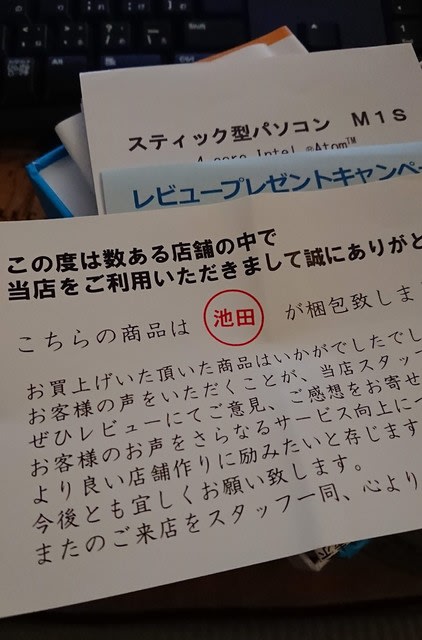 スティック型パソコン M1S
4 core Intel ®Atom™
レビュープレゼントキャンペー
この度は数ある店舗の中で
当店をご利用いただきまして誠にありがと
こちらの商品は 池田 が梱包致しま
お買上げいた頂いた商品はいかがでしたでし
お客様の声をいただくことが、当店スタッフ
ぜひレビューにてご意見、ご感想をお寄せ
お客様のお声をさらなるサービス向上に
より良い店舗作りに励みたいと存じます
今後とも宜しくお願い致します。
またのご来店をスタッフ一同、心より